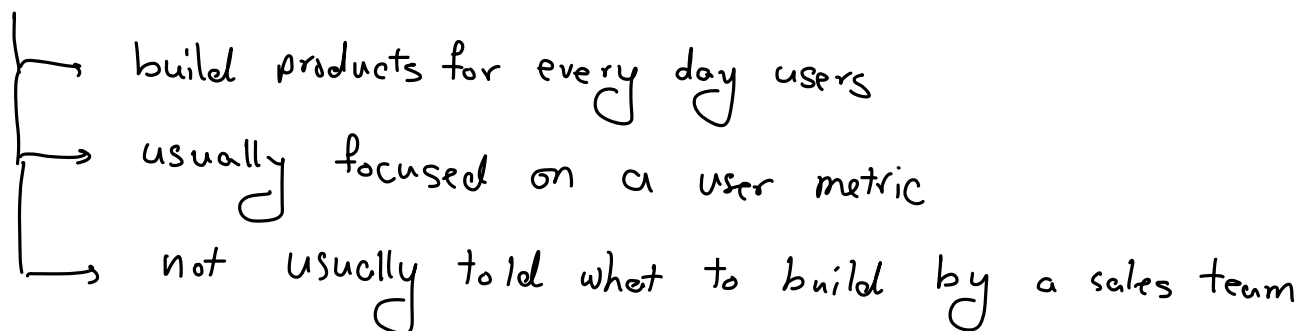 build products for every day users
usually focused on a user metric
not usually told what to build by a sales team